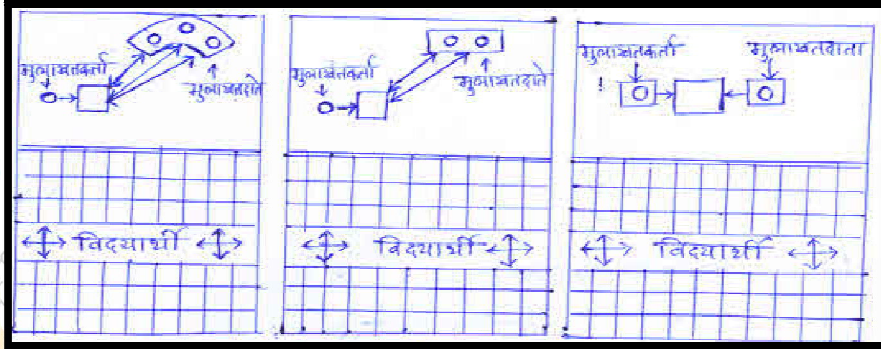 मुलाखतकर्ता
मुलाखतदाते
विदयार्थी
मुलाखतकर्ता
मुलाखतदाते
विदयार्थी
मुलाखतकर्ता
मुलाखतदाता
विदयार्थी